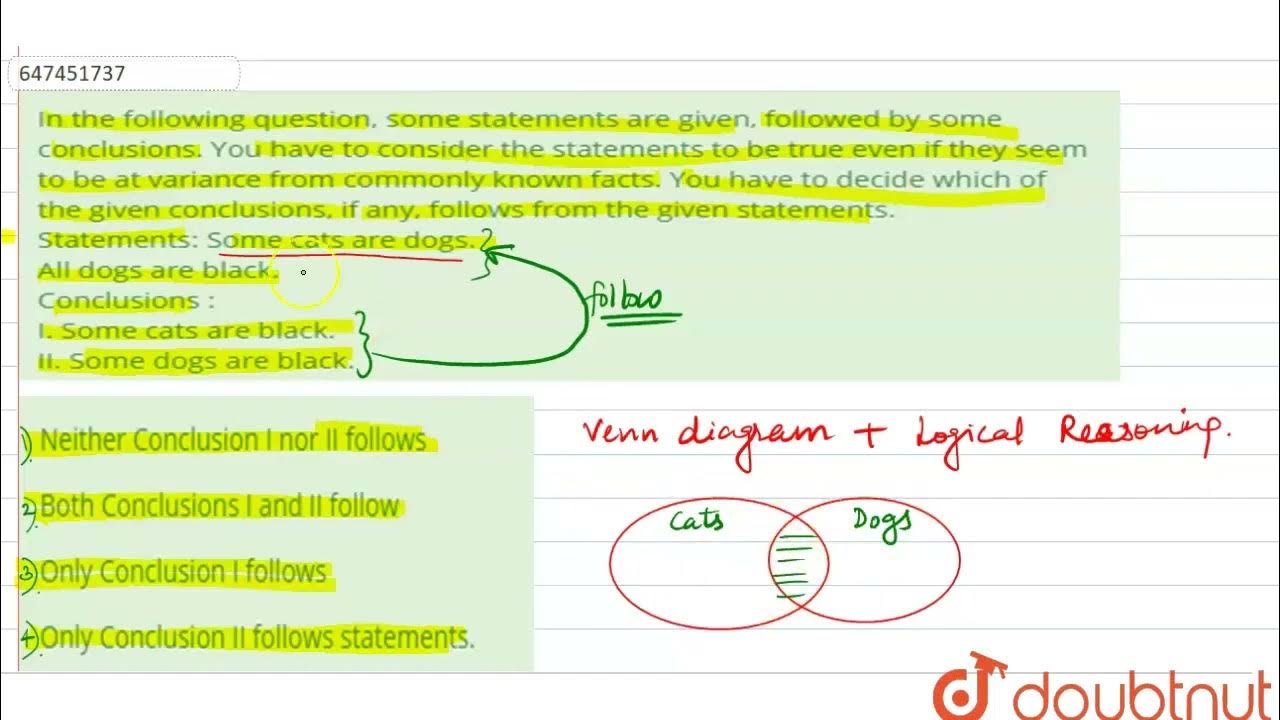 647451737
In the following question, some statements are given, followed by some
conclusions. You have to consider the statements to be true even if they seem
to be at variance from commonly known facts. You have to decide which of
the given conclusions, if any, follows from the given statements.
Statements: Some cats are dogs.
All dogs are black.
Conclusions :
I. Some cats are black.
II. Some dogs are black.
follow
1). Neither Conclusion I nor II follows
2). Both Conclusions I and II follow
3). Only Conclusion I follows
4). Only Conclusion II follows statements.
Venn diagram + Logical Reasoning.
Cats
Dogs
doubtnut